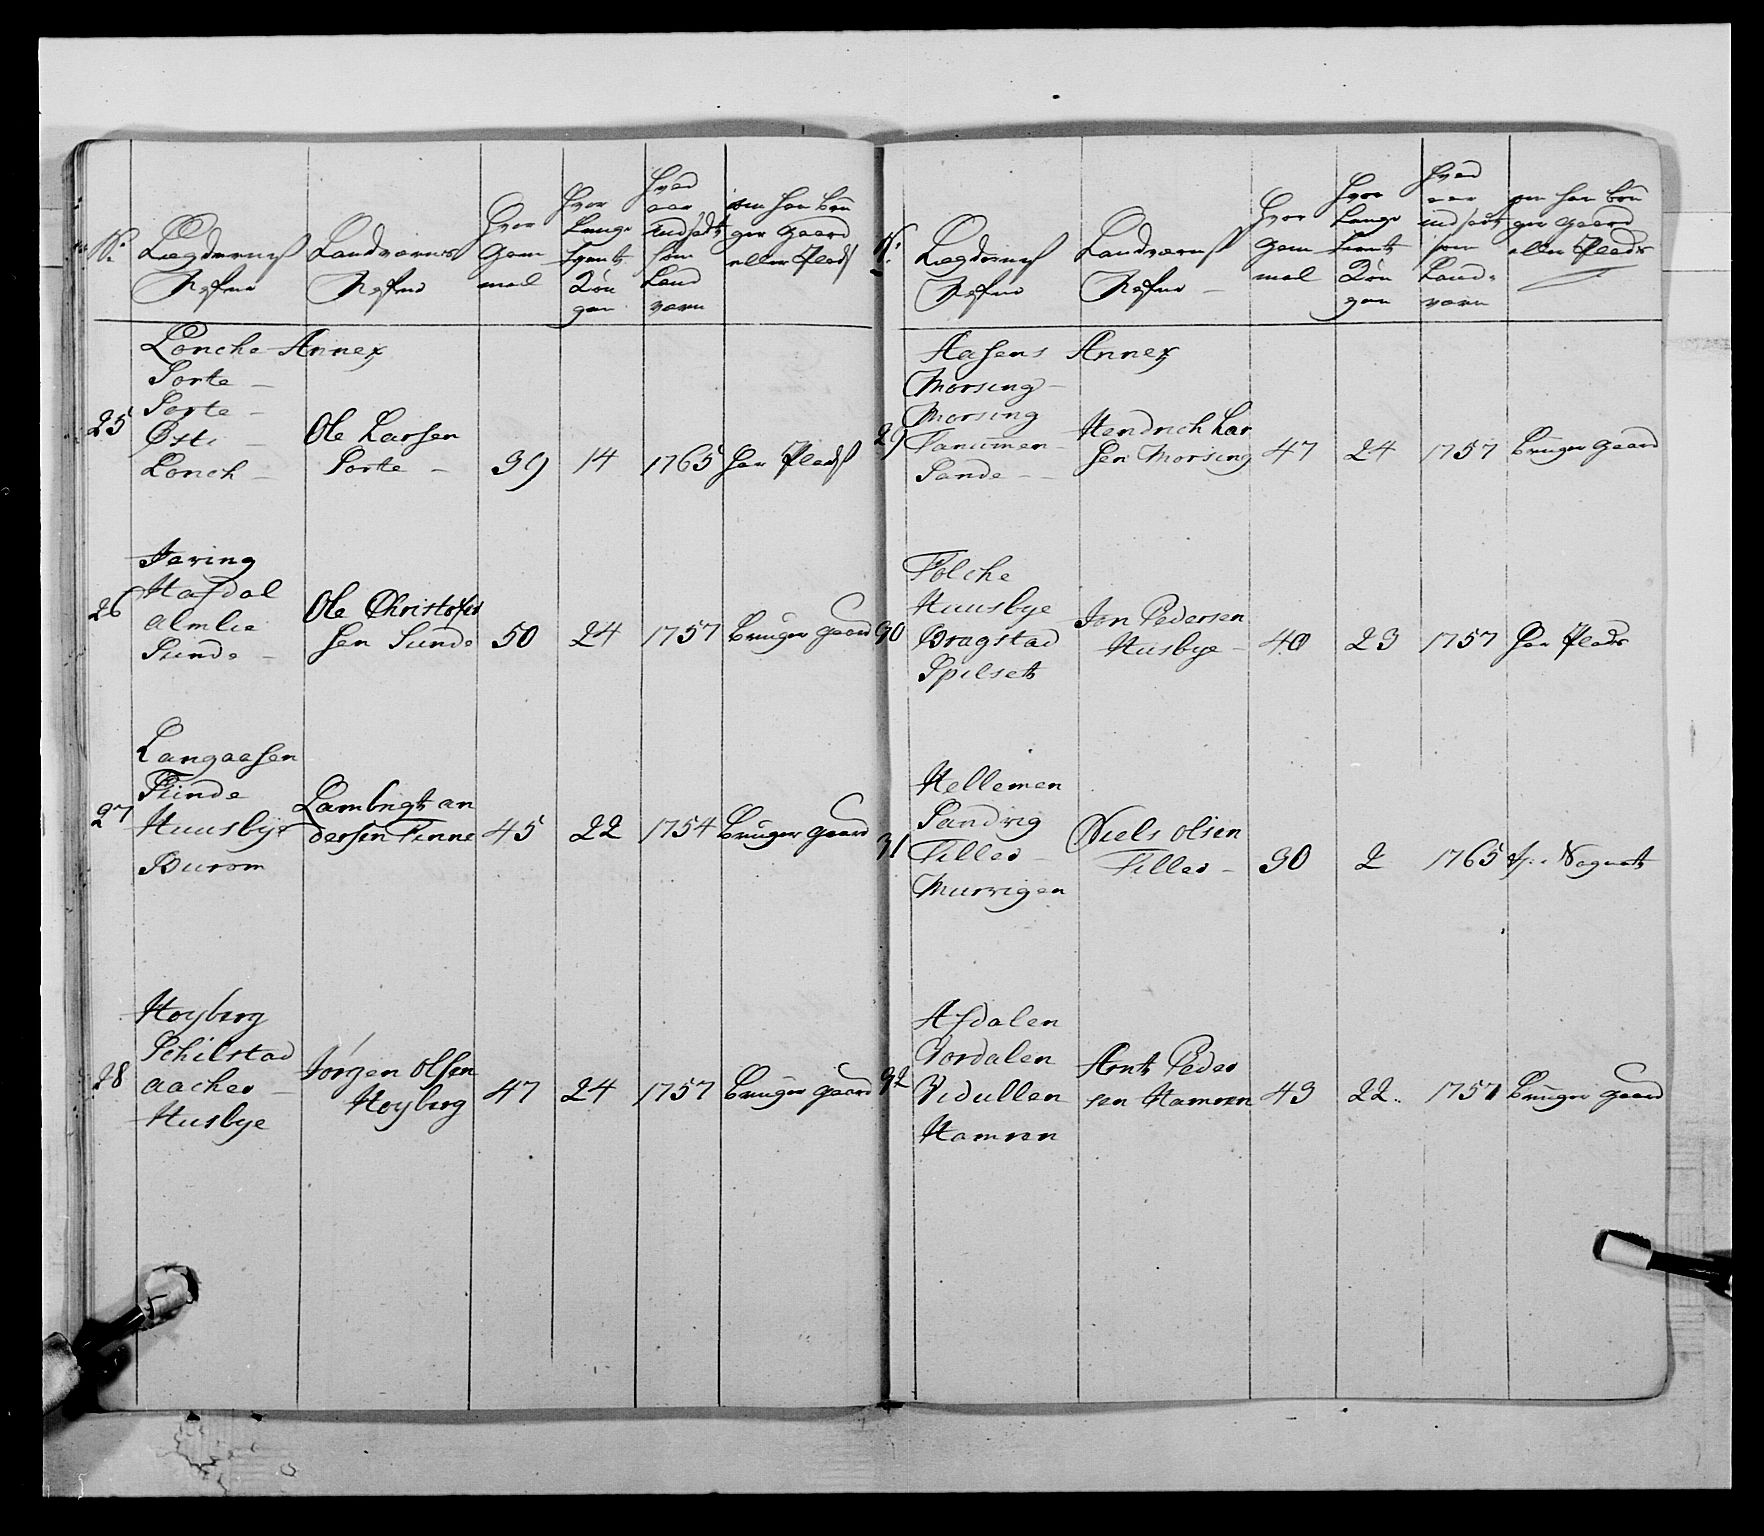 No.
Lægdernes
Nafne
Landværnes
Nafne
Hvor
Gam
mel
Hvor
Længe
tient
Kon
gen
Hvad
aar
Indsadt
som
Land
værn
om han bru
ger gaard
eller Plads
Lonche Annex
Sorte -
25
Sorte -
Østi -
Lonch -
Ole Larsen
Sorte -
39
14
1765
har Plads
26
Faring
Hafdal
almlie
Sunde -
Ole Christofer
sen Sunde
50
24
1757
bruger gaard
27
Langaasen
Finde
Huusbye
Burom
Lambrigt an
dersen Finne
45
22
1754
bruger gaard
28
Hoyberg
Schilstad
aacher -
Husbye
Jørgen Olsen
Hoyberg
47
24
1757
bruger gaard
No:
Lægdernes
Nafne
Landværnes
Nafne -
Hvor
Gam
mel
Hvor
Længe
tient
Kon
gen
Hvad
aar
indsadt
som
Land-
værn
om han bru
ger gaard
eller Plads
Aasens Annex
Morsing -
29
Morsing
Fanumen
Sande - -
Hendrich Lar
sen Morsing
47
24
1757
bruger gaard
30
Folche
Huusbye
Bragstad
Spilset
Jon Pedersen
Husbye -
40
23
1757
har Plads
31
Hellemen
Sandvig
Filles -
Murvigen
Niels olsen
Filles -
30
2
1765
32
Afdalen
Nordalen
Vidullen
Hamren
Arnt Peder
sen Hamren
43
22.
1757
bruger gaard